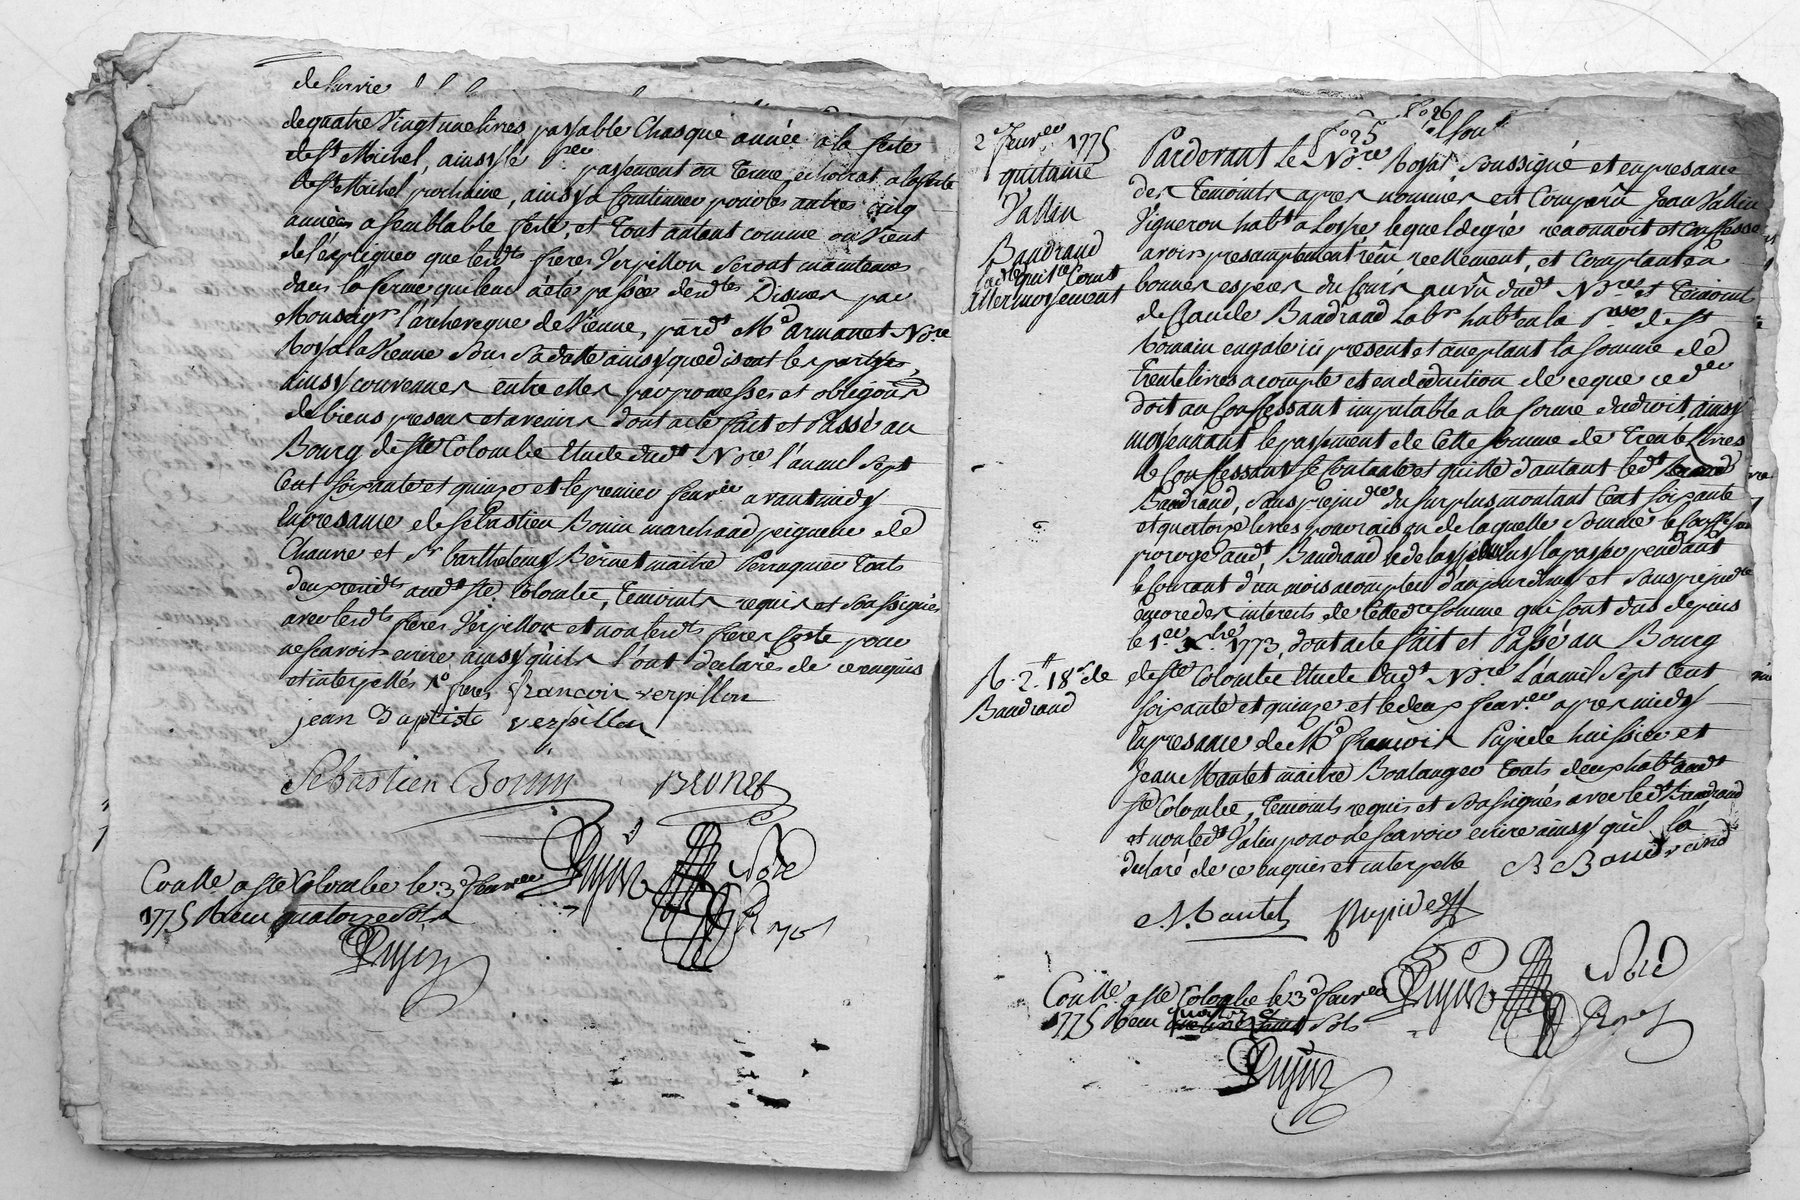 de survie
de quatre vingt une livres, payable Chasque année a la feste
de St Michel, ainsy le pr. payement ou Terme echoirat a la feste
de St Michel prochaine, ainsy a Continuer pour les autres cinq
années a semblable feste, et Tout autant comme on Vient
de l'expliquer que lesdts freres Verpillon seront maintenus
dans la ferme qui leur a été passée desdtes Dismes par
Monsegr l'archeveque de Vienne, pardt Me armanet Nore
Royal a Vienne Sous Sa datte ainsy que disent les parties,
ainsy convenues entre elles par promesses et obligons
de biens presens et avenirs dont acte fait et Passé au
Bourg de Ste Colombe Etude dudt Nore l'an mil sept
Cent soixante et quinze et le premier fevrier avant midy
En presance de sebastien Bonin marchand peigneur de
Chanvre et Sr barthelemy Brunet maitre Perruquier Touts
deux residts audt Ste Colombe, Temoints requis et soussignés
avec lesdts freres Verpillon et non lesdts freres Coste pour
ne scavoir ecrire ainsy qu'ils l'ont declarés de ce enquis
et interpellés
francois verpillon
jean Baptiste verpillon
Sebastien Bonin BRUNET
Dujin Nore
Royal
Conlle a Ste Colombe le 3e fevrier
1775 Recu quatorze sols
Dujin
fo 26
fo 25
2e fevrier 1775
quitance
Vallin
Baudrand
Par devant le Nore Royal, Soussigné et en presance
des Temoints apres nommés est Comparû Jean Vallin
Vigneron habt a Loire lequel de gré reconnoit et Confesse
avoir presamptement reçû reellement, et Comptant en
bonnes especes du Cours au vû dudt Nore et Temoints
de Claude Baudrand Labr habt en la psse de St
Romain en gal ici present et aceptant la somme de
Trente livres a compte et en deduction de ce que ce der
doit au Confessant imputable a la forme du droit, ainsy
moyennant le payement de Cette somme de Trente Livres
le Confessant se Contante et quitte d'autant ledt
Baudrand, sans prejudce du surplus montant Cent soixante
et quatorze livres
proroge audt Baudrand
le Courant d'un mois a compter d'aujourdhuy et sans prejudce
encore des interests de cette dte somme qui sont dus depuis
le 1er 1773, dont acte fait et Passé au Bourg
R. 2tt 18s de
Baudrand
de Ste Colombe Etude dudt Nore L'an mil sept Cent
soixante et quinze et le deux fevrier apres midy
En presance de Me francois Pupide huissier et
Jean Mantet maitre Boulanger Touts deux habts audt
Ste Colombe, Temoints requis et soussignés avec ledt Baudrand
et non ledt Valin pour ne scavoir ecrire ainsy qu'il l'a
declaré de ce enquis et interpellé B Baudrand
Mantet Pupide
Dujin Nore
Royal
Conlle a Ste Colombe le 3e fevrier
1775 Recu quatorze Sols
Dujin